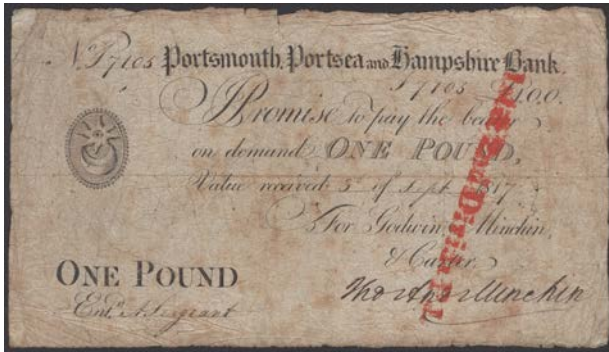 No. P7105 Portsmouth, Portsea and Hampshire Bank.
P7105 £1.0.0.
I Promise to pay the bearer
on demand ONE POUND,
Value received 3 of Sept. 1817
For Godwin, Minchin,
& Carter
ONE POUND
Entd. A Sergeant
Thos Minchin
2nd Divid